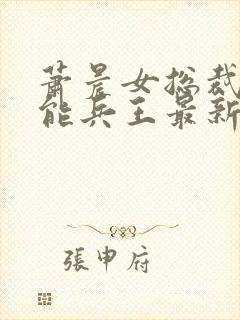 萧晨女总裁
能兵王最新
張申府